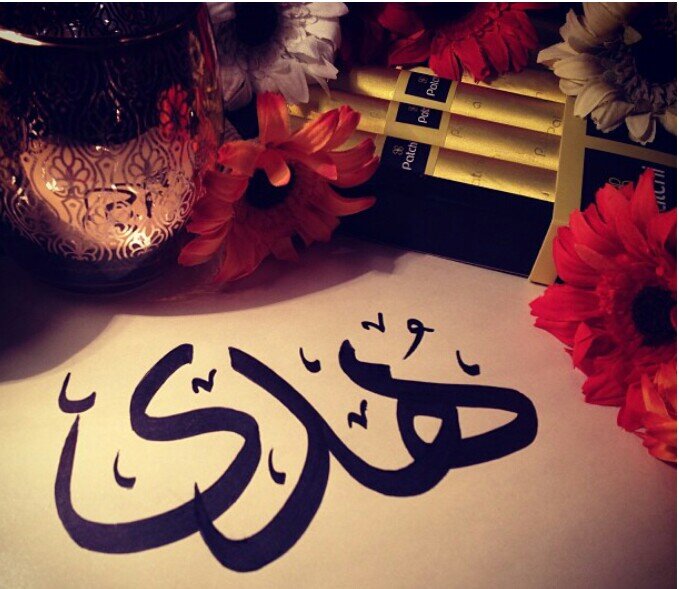 Patchi
Patchi
Patchi
Patchi
هُدى